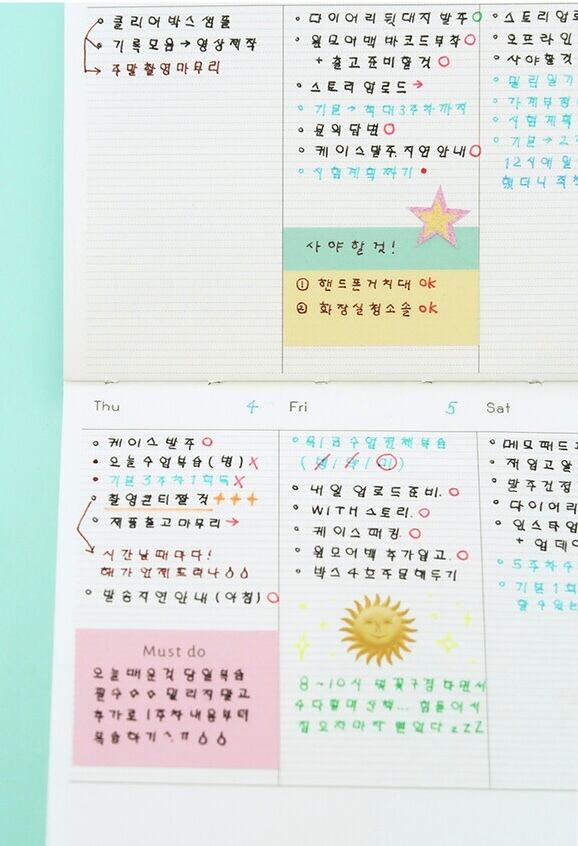 클리어 박스 샘플
기록모음 → 영상제작
주말 촬영마무리
다이어리 뒷대지 발주
원모어백 바코드부착
+ 출고 준비할것
스토리 업로드 →
기본 → 최대 3주차까지
문의답변
케이스발주 지연안내
시험계획짜기
사야할것!
① 핸드폰거치대 OK
② 화장실청소솔 OK
스토리업로
오프라인
사야할것
밀린일기
가계부정
시험계획
기본 → 2
12시에 일
했더니
Thu 4
케이스 발주
오늘수업복습 (병) X
기본 3주차 1회독 X
촬영콘티짤것 +++
제품출고마무리 →
시간날때마다!
해가 언제뜨려나
발송지연안내 (아침)
Must do
오늘 배운것 당일복습
필수 ◇◇ 밀리지말고
추가로 1주차 내용부터
복습하기 ^.ㅠ
Fri 5
목/금수업전체복습
내일 업로드준비.
WITH스토리.
케이스패킹.
원모어백 추가입고.
박스 4호주문해두기
8~10시 벚꽃구경하면서
수다떨며 산책... 힘들어서
집 오자마자 뻗었다 zZZ
Sat
메모패드
재입고알
발주건정
다이어리
인스타업
+ 업데이
5주차수
기본 1회
할수있는